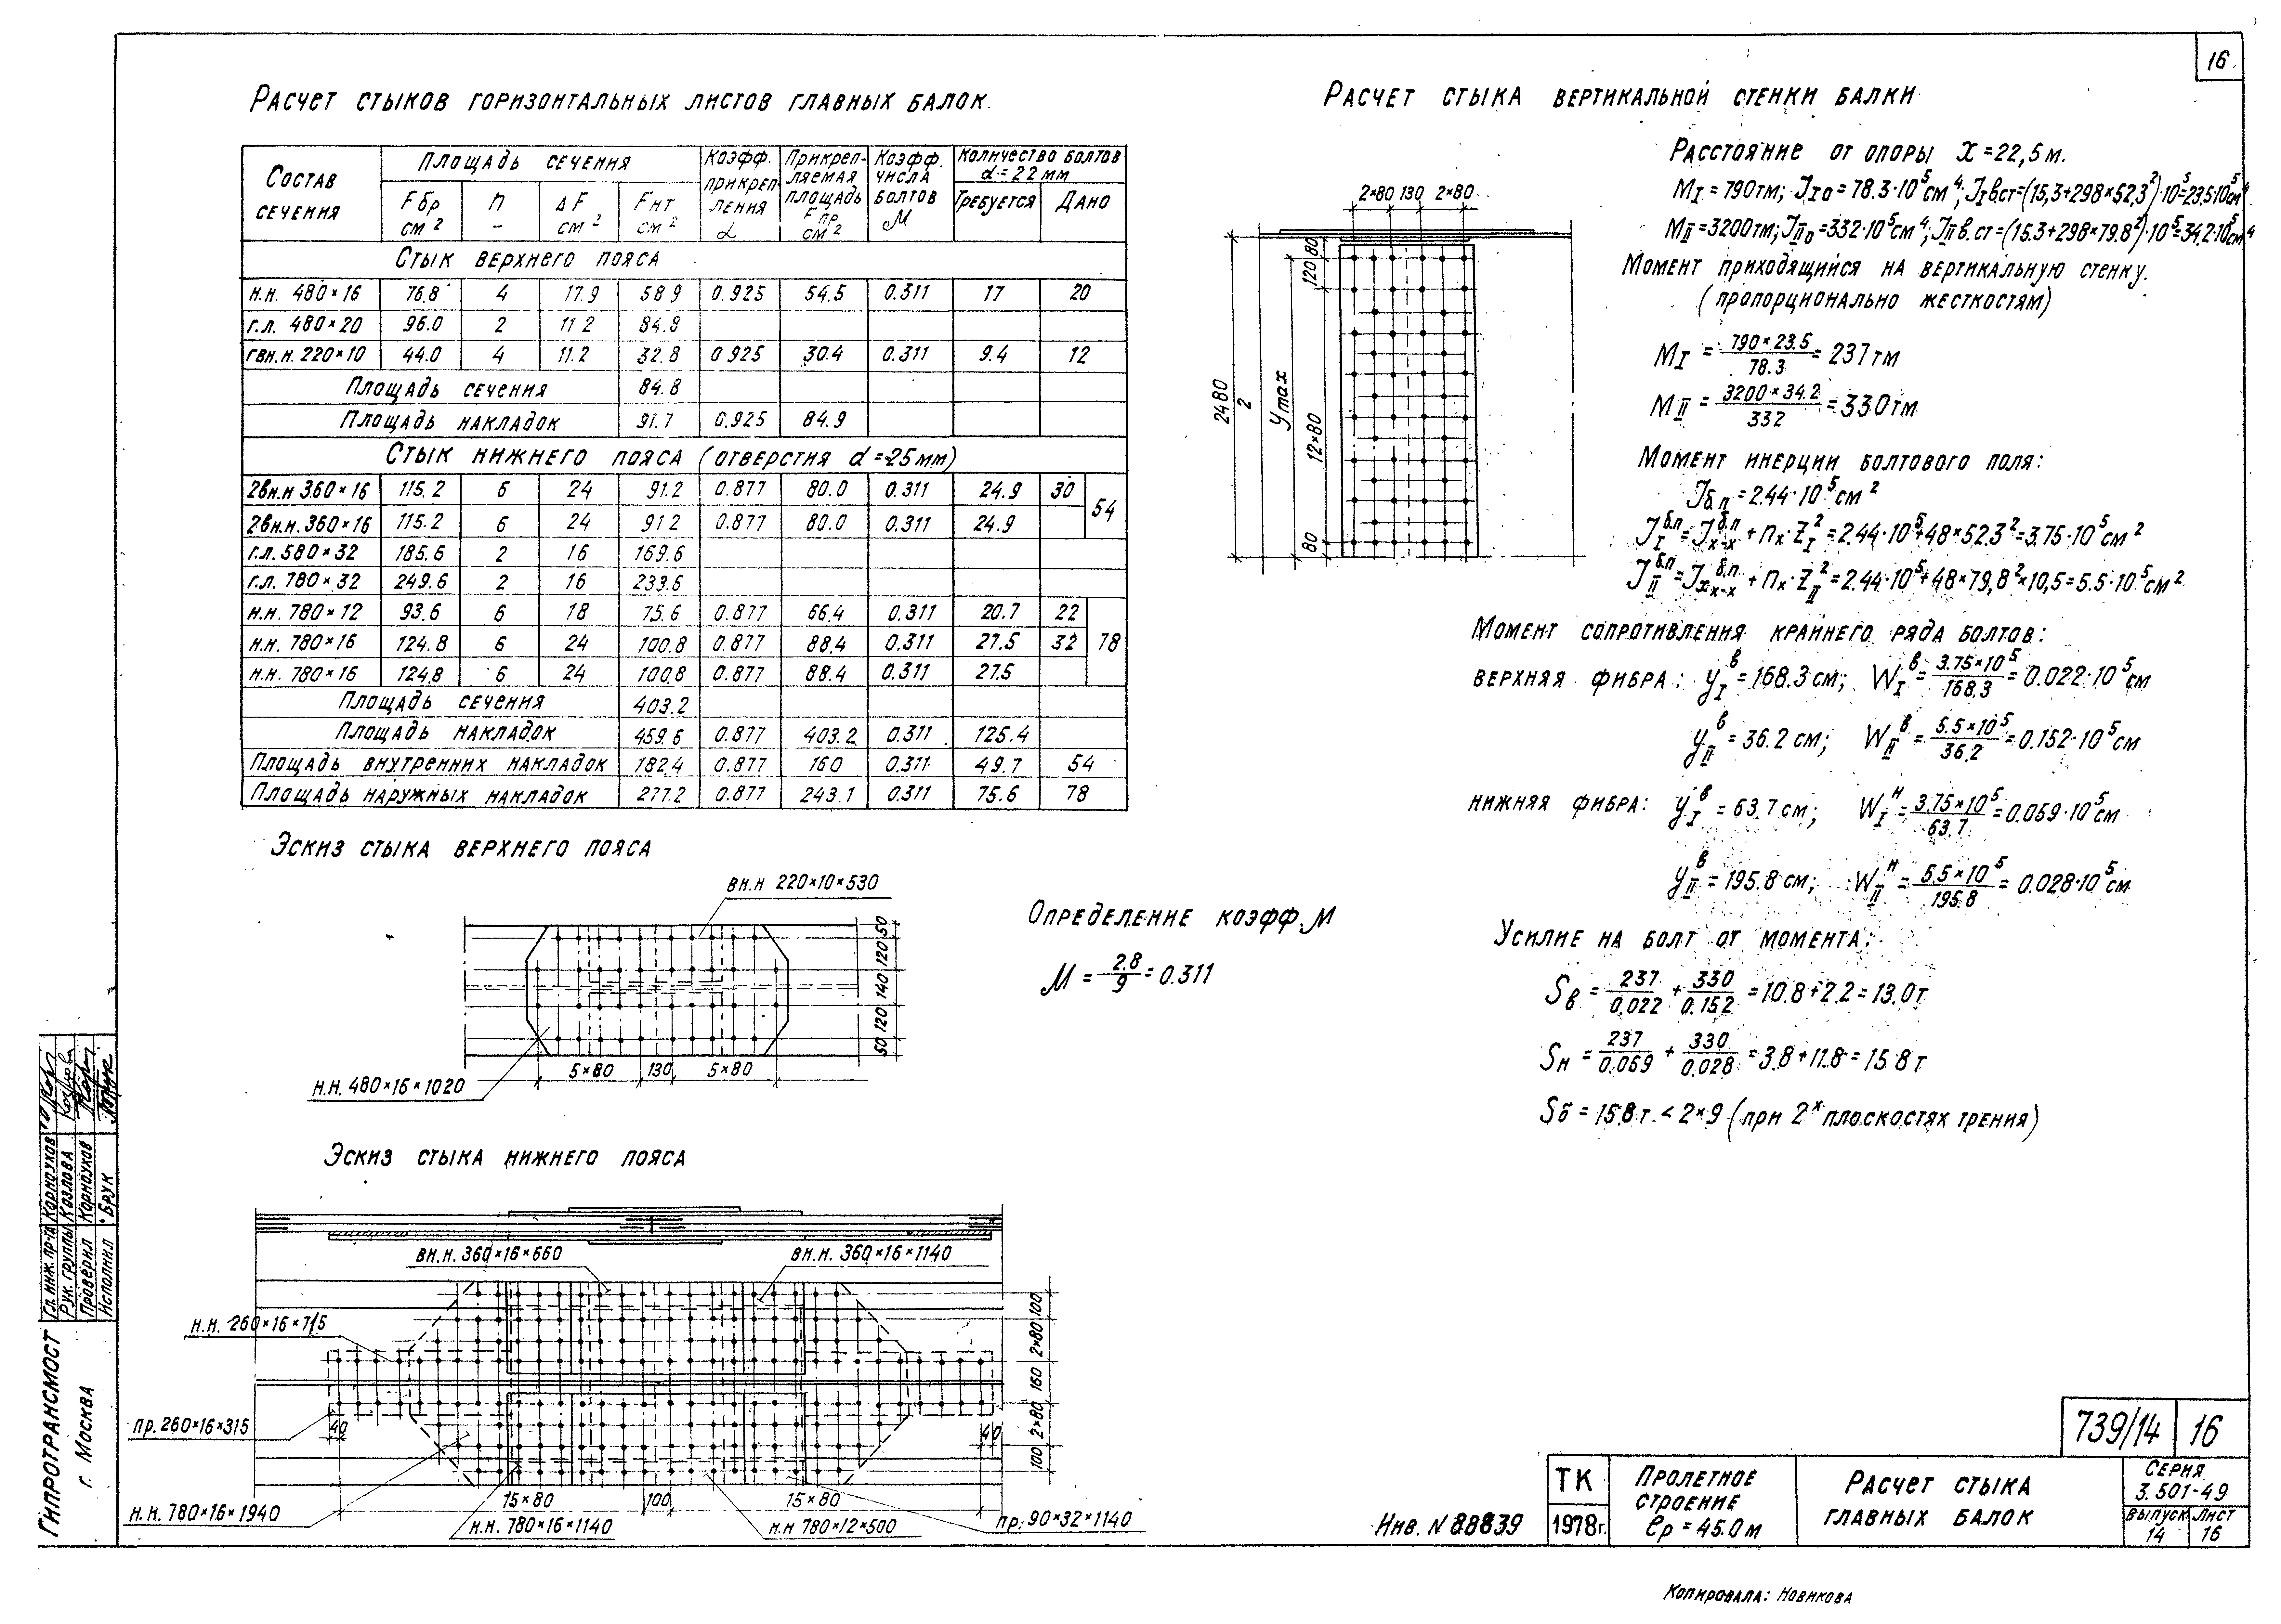 16
Расчет стыков горизонтальных листов главных балок.
Состав сечения | Площадь сечения | Коэфф. прикрепления α | Прикрепляемая площадь Fпр см² | Коэфф. числа болтов М | Количество болтов d=22мм
Fбр см² | n – | ΔF см² | Fнт см² | Требуется | Дано
Стык верхнего пояса
н.н. 480×16 | 76.8 | 4 | 17.9 | 58.9 | 0.925 | 54.5 | 0.311 | 17 | 20
г.л. 480×20 | 96.0 | 2 | 11.2 | 84.8
гвн.н. 220×10 | 44.0 | 4 | 11.2 | 32.8 | 0.925 | 30.4 | 0.311 | 9.4 | 12
Площадь сечения | 84.8
Площадь накладок | 91.7 | 0.925 | 84.9
Стык нижнего пояса (отверстия d=25мм)
2вн.н 360×16 | 115.2 | 6 | 24 | 91.2 | 0.877 | 80.0 | 0.311 | 24.9 | 30 | 54
2вн.н. 360×16 | 115.2 | 6 | 24 | 91.2 | 0.877 | 80.0 | 0.311 | 24.9
г.л. 580×32 | 185.6 | 2 | 16 | 169.6
г.л. 780×32 | 249.6 | 2 | 16 | 233.6
н.н. 780×12 | 93.6 | 6 | 18 | 75.6 | 0.877 | 66.4 | 0.311 | 20.7 | 22 | 78
н.н. 780×16 | 124.8 | 6 | 24 | 100.8 | 0.877 | 88.4 | 0.311 | 27.5 | 32
н.н. 780×16 | 124.8 | 6 | 24 | 100.8 | 0.877 | 88.4 | 0.311 | 27.5
Площадь сечения | 403.2
Площадь накладок | 459.6 | 0.877 | 403.2 | 0.311 | 125.4
Площадь внутренних накладок | 182.4 | 0.877 | 160 | 0.311 | 49.7 | 54
Площадь наружных накладок | 277.2 | 0.877 | 243.1 | 0.311 | 75.6 | 78
Эскиз стыка верхнего пояса
вн.н 220×10×530
50 120 140 120 50
5×80 130 5×80
н.н. 480×16×1020
Определение коэфф. М
М = 2.8/9 = 0.311
Эскиз стыка нижнего пояса
вн.н. 360×16×660
вн.н. 360×16×1140
н.н. 260×16×715
пр. 260×16×315
40
40
100 2×80 160 2×80 100
15×80 100 15×80
н.н. 780×16×1940
н.н. 780×16×1140
н.н 780×12×500
пр. 90×32×1140
Расчет стыка вертикальной стенки балки
2×80 130 2×80
80
120
12×80
80
2480
2
Уmax
Расстояние от опоры x=22,5м.
MI = 790тм; JIо = 78.3·10⁵см⁴; JIв.ст=(15,3+298×52,3²)·10⁵=23.5·10⁵см⁴
MII=3200тм; JIIо=332·10⁵см⁴; JIIв.ст=(15.3+298×79.8²)·10⁵=34.2·10⁵см⁴
Момент приходящийся на вертикальную стенку.
(пропорционально жесткостям)
MI = 790×23.5/78.3 = 237тм
MII = 3200×34.2/332 = 330тм
Момент инерции болтового поля:
Jб.п=2.44·10⁵см²
JIб.п=Jx-xб.п+nx·ZI²=2.44·10⁵+48×52.3²=3.75·10⁵см²
JIIб.п=Jxx-xб.п+nx·ZII²=2.44·10⁵+48×79,8²×10,5=5.5·10⁵см²
Момент сопротивления крайнего ряда болтов:
верхняя фибра: yIв=168.3см; WIв=3.75×10⁵/168.3=0.022·10⁵см
yIIв=36.2см; WIIв=5.5×10⁵/36.2=0.152·10⁵см
нижняя фибра: yIв=63.7см; WIн=3.75×10⁵/63.7=0.059·10⁵см
yIIв=195.8см; WIIн=5.5×10⁵/195.8=0.028·10⁵см
Усилие на болт от момента:
Sв=237/0.022+330/0.152=10.8+2.2=13.0т
Sн=237/0.059+330/0.028=3.8+11.8=15.8т
Sб=15.8т.<2×9 (при 2х плоскостях трения)
Гипротрансмост
г. Москва
Гл. инж. пр-та Корноухов
Рук. группы Козлова
Проверил Корноухов
Исполнил Брук
739/14 16
Инв. N 88839
ТК
1978г.
Пролетное строение ℓр=45.0м
Расчет стыка главных балок
Серия 3.501-49
Выпуск 14
Лист 16
Копировала: Новикова